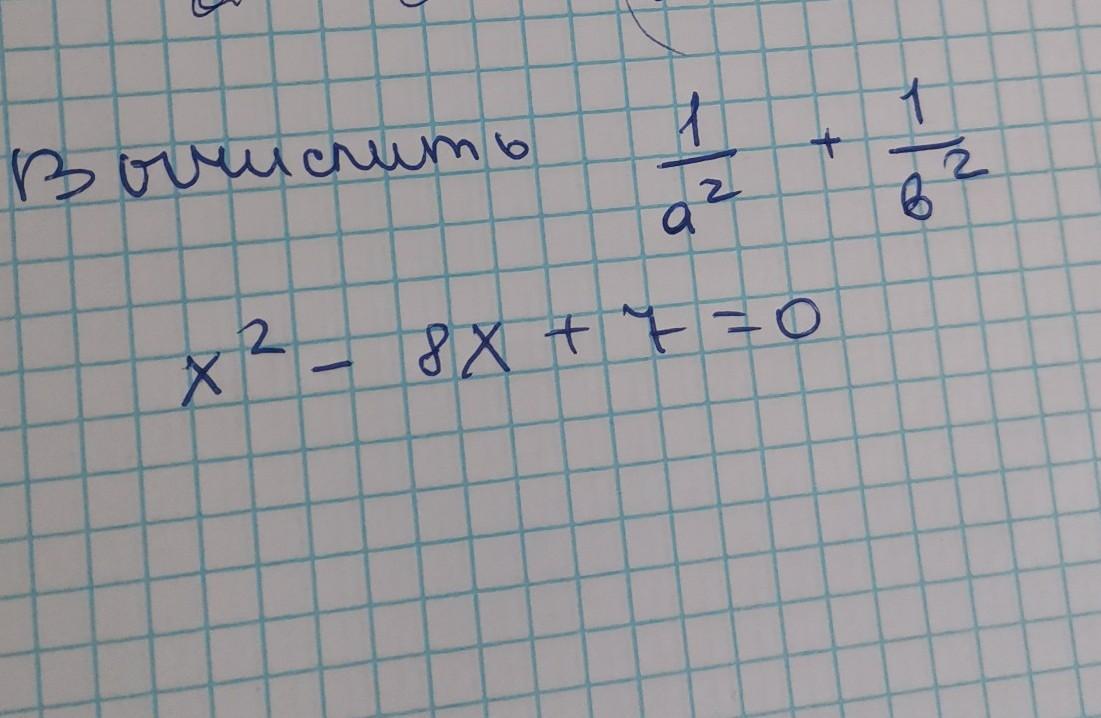 Вычислить 1/a² + 1/b²
x² - 8x + 7 = 0